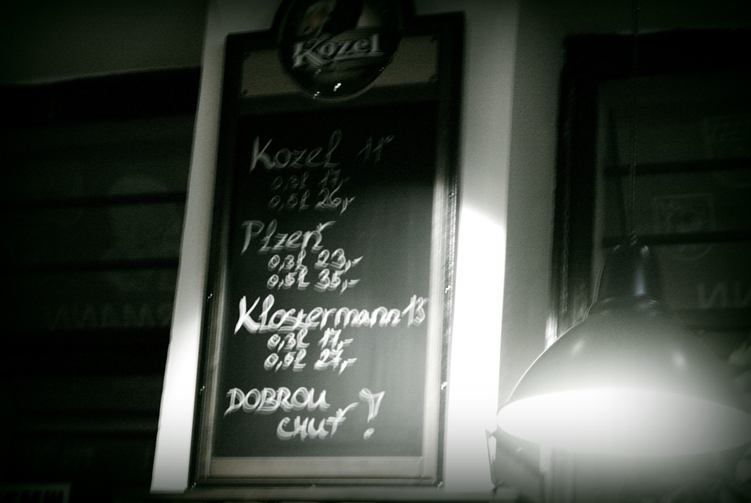 Kozel
Kozel 11°
0,3l 17,-
0,5l 26,-
Plzeň
0,3l 23,-
0,5l 35,-
Klostermann 13
0,3l 17,-
0,5l 27,-
DOBROU
CHUŤ !